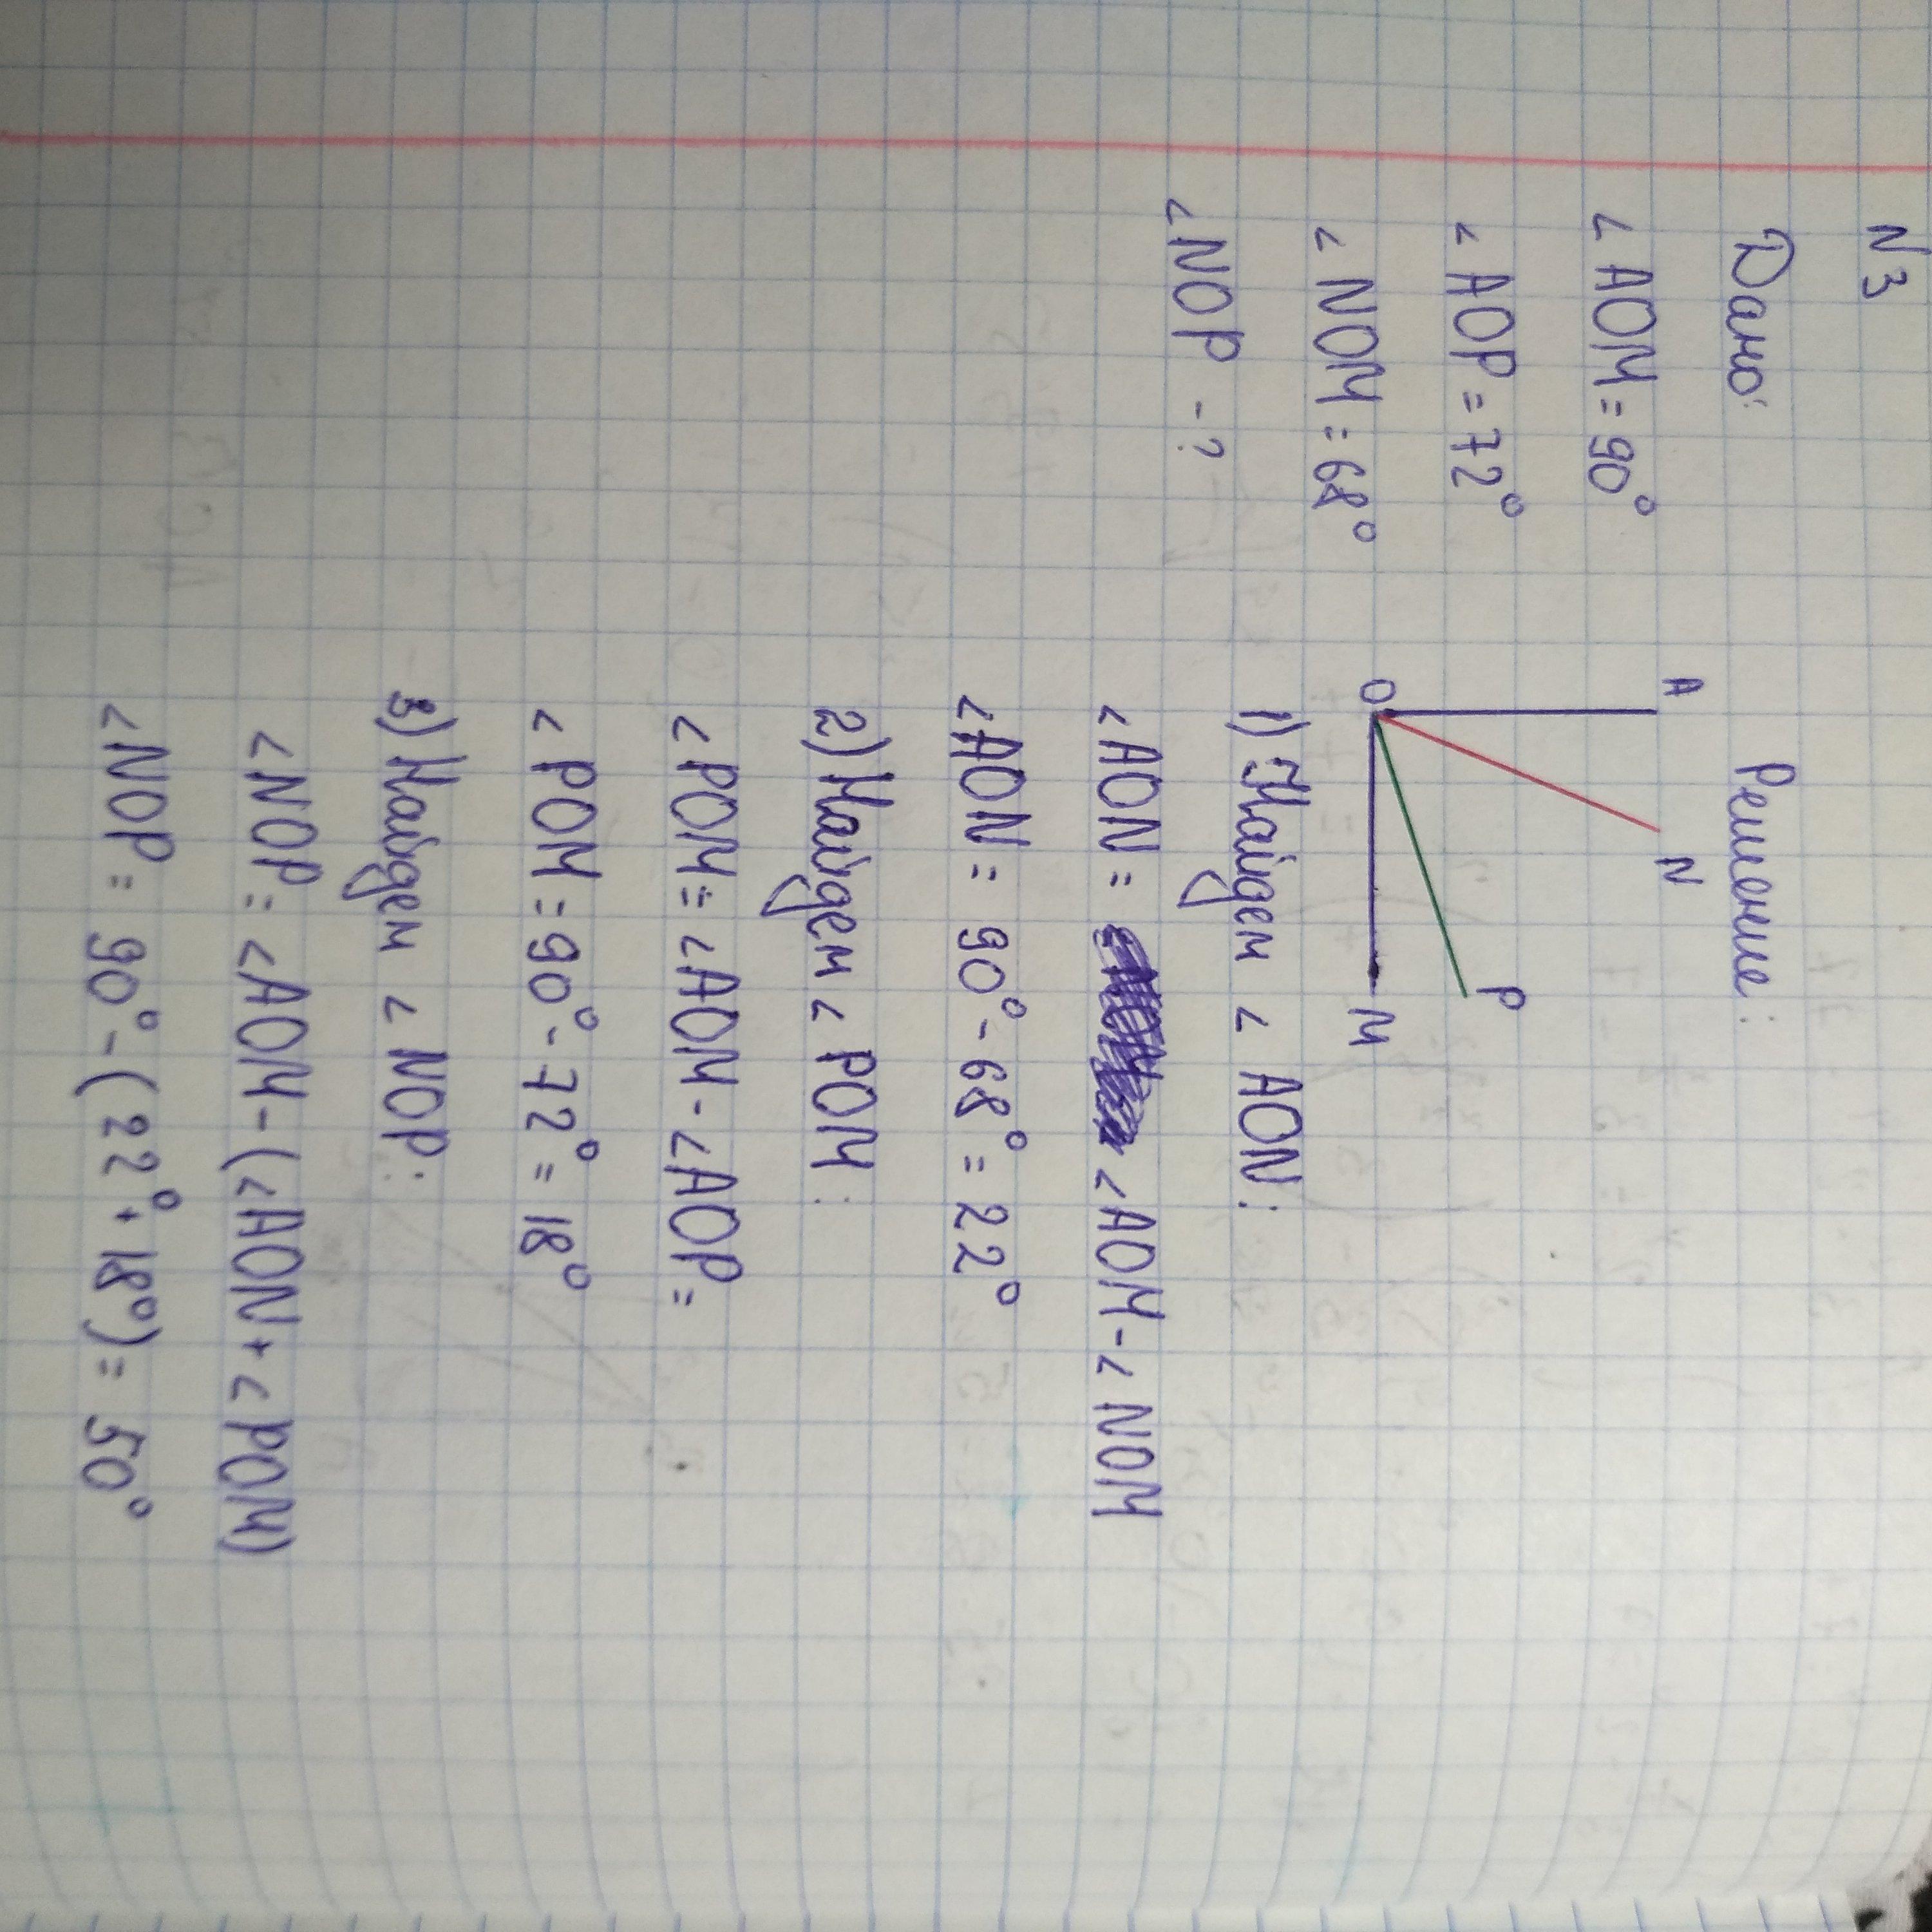 N3
Дано:
∠AOM = 90°
∠AOP = 72°
∠NOM = 68°
∠NOP - ?
Решение:
A
N
P
O
M
1) Найдем ∠AON:
∠AON = ∠AOM - ∠NOM
∠AON = 90° - 68° = 22°
2) Найдем ∠POM:
∠POM = ∠AOM - ∠AOP =
∠POM = 90° - 72° = 18°
3) Найдем ∠NOP:
∠NOP = ∠AOM - (∠AON + ∠POM)
∠NOP = 90° - (22° + 18°) = 50°